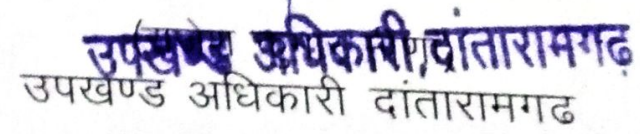 उपखण्ड अधिकारी,दांतारामगढ़
उपखण्ड अधिकारी दांतारामगढ